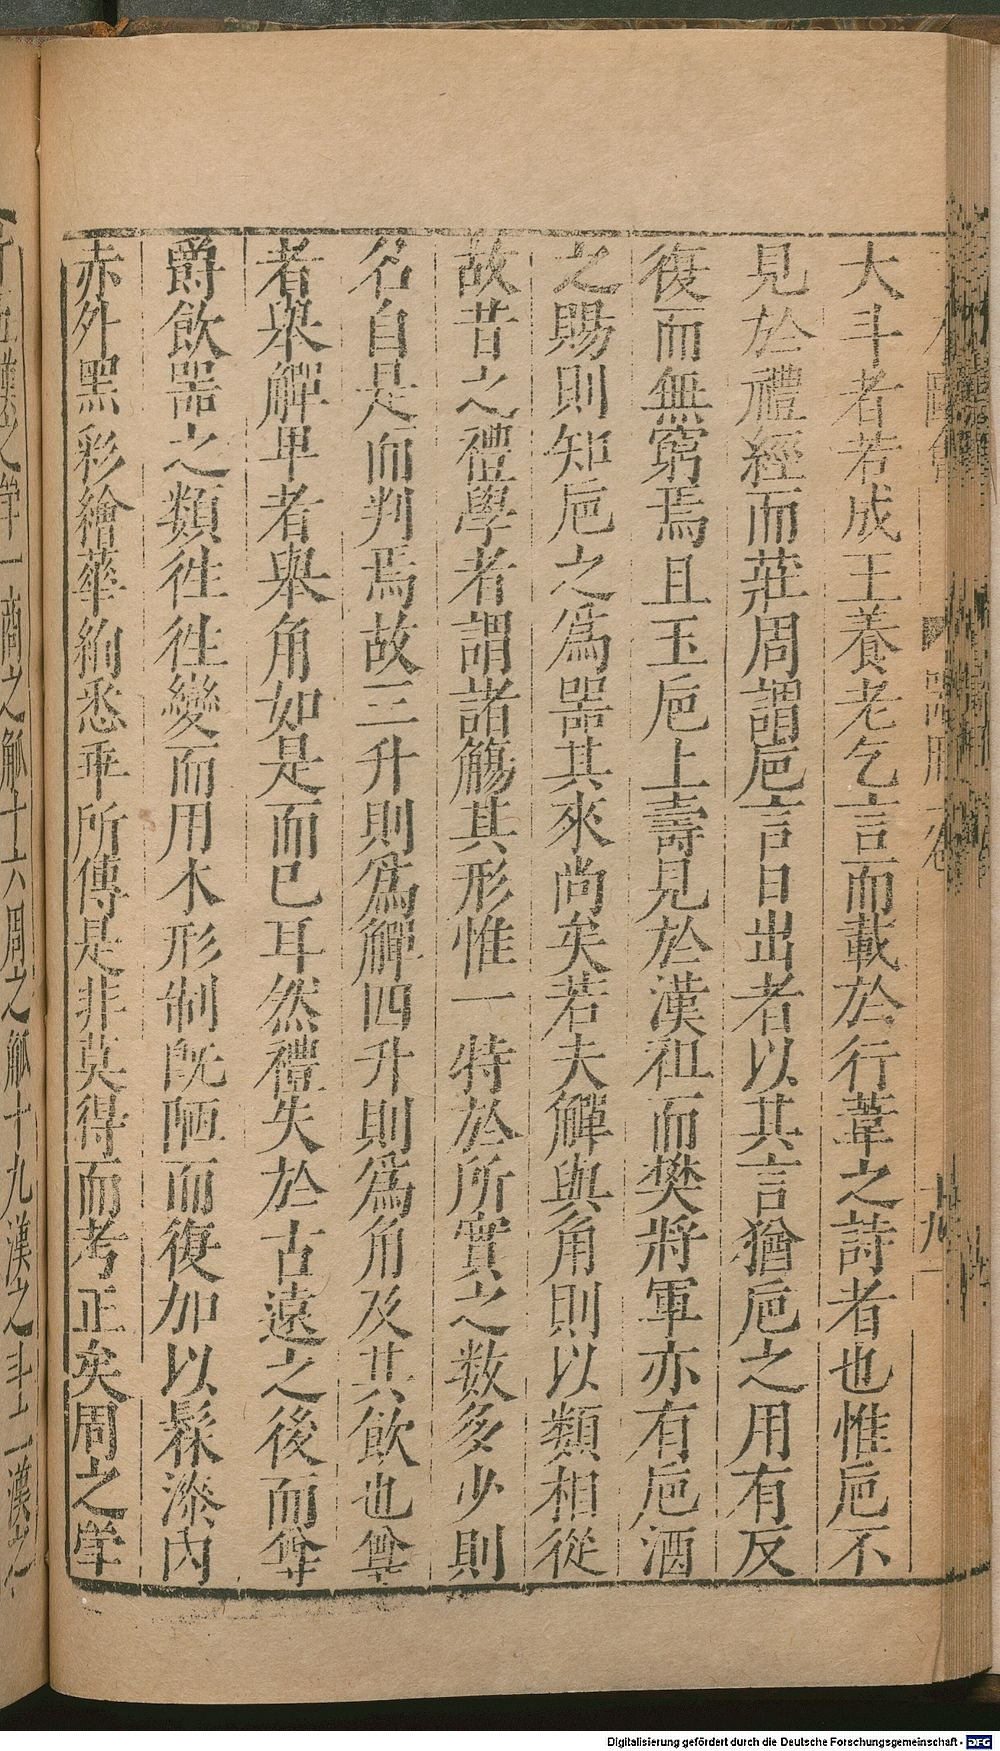 大斗者若成王養老乞言而載於行葦之詩者也惟巵不
見於禮經而莊周謂巵言日出者以其言猶巵之用有反
復而無窮焉且玉巵上壽見於漢祖而樊將軍亦有巵酒
之賜則知巵之為噐其來尚矣若夫觶與角則以類相從
故昔之禮學者謂諸觴其形惟一特於所實之数多少則
名自是而判焉故三升則為觶四升則為角及其飲也尊
者舉觶卑者舉角如是而已耳然禮失於古遠之後而斝
爵飲噐之類徃徃變而用木形制既陋而復加以髹漆内
赤外黑彩繪華絢悉乖所傳是非莫得而考正矣周之斝
一商之觚十六周之觚十九漢之斗二漢之
Digitalisierung gefördert durch die Deutsche Forschungsgemeinschaft - DFG